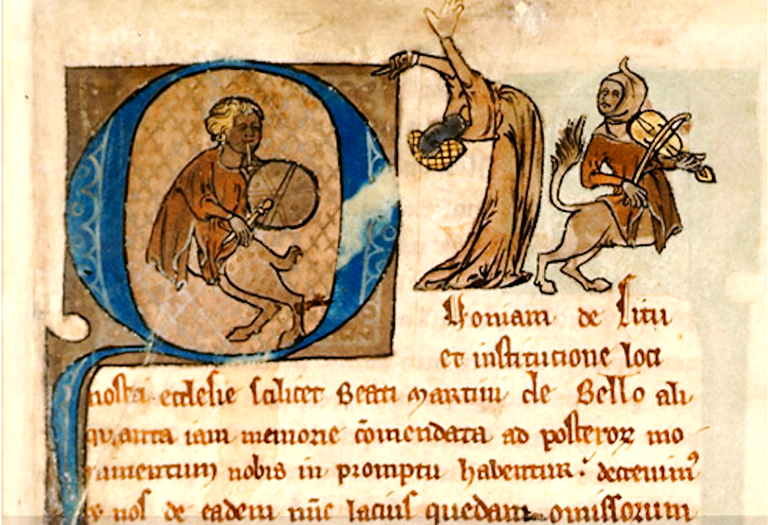 Quoniam de situ
et institucione loci
nostri ecclesie scilicet Beati Martini de Bello ali
quanta iam memorie cōmendata ad posteroꝝ mo
numentum nobis in promptu habentur: decreuimꝰ
nos de eadem nūc lacius quedam omissorum